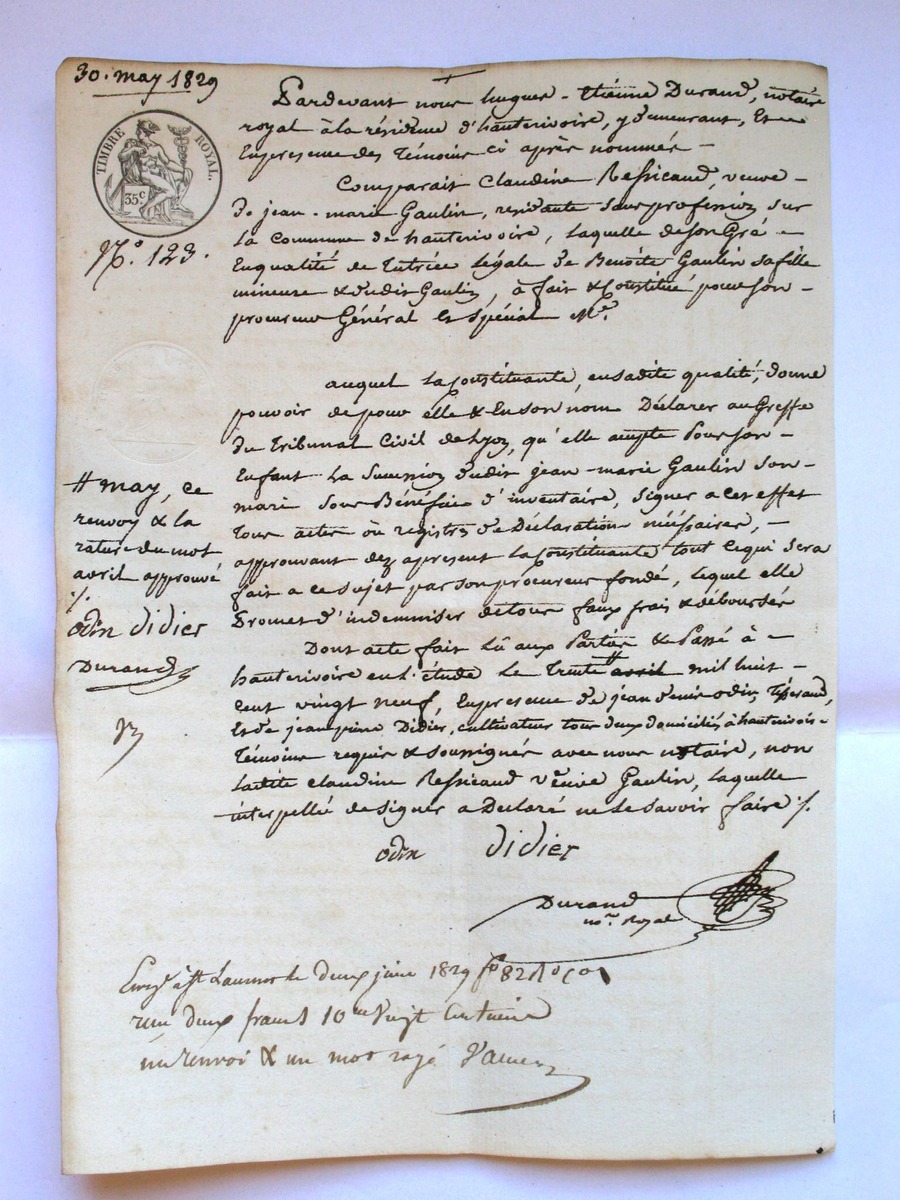 30. may 1829
TIMBRE ROYAL.
35c
No. 123.
Pardevant nous hugues - Etienne Durand, notaire
royal à la résidence d'hauterivoire, y demeurant, Et
En presence des Témoins ci après nommés -
Comparait Claudine Ressicaud, veuve -
de jean-marie Gaulin, residante sans profession sur
la Commune de hauterivoire, laquelle de son Gré -
En qualité de Tutrice légale de Benoite Gaulin sa fille
mineure & dudit Gaulin, à fait & Constitué pour son -
procureur Général et spécial Me.
auquel la Constituante, en sadite qualité, donne
pouvoir de pour elle & En son nom Déclarer au Greffe
du Tribunal Civil de Lyon, qu'elle accepte Pour son -
Enfant La Succession dudit jean-marie Gaulin son -
mari sous Bénéfice d'inventaire, signer a cet effet
Tous actes où registres de Déclaration nécessaires, -
approuvant dez apresent la Constituante tout ce qui sera
fait a ce sujet par son procureur fondé, lequel elle
Promet d'indemniser de tous faux frais & déboursés
Dont acte fait Lû aux Parties & Passé à -
hauterivoire en l'étude Le Trente # avril mil huit -
cent vingt neuf, En presence de jean denis odin, Tisserand,
Et de jean pierre Didier, cultivateur tous deux domiciliés à hauterivoire
Témoins requis & soussignés avec nous notaire, non
ladite Claudine Ressicaud veuve Gaulin, laquelle
interpellée de signer a Déclaré ne le savoir faire ./.
# may, ce
renvoy & la
rature du mot
avril approuvé
./.
odin didier
Durand
odin didier
Durand
nore. Royal
Enregé à St Laurent le deux juin 1829 fo 82
reçu deux francs 10me vingt Centimes
un renvoi & un mot rayé